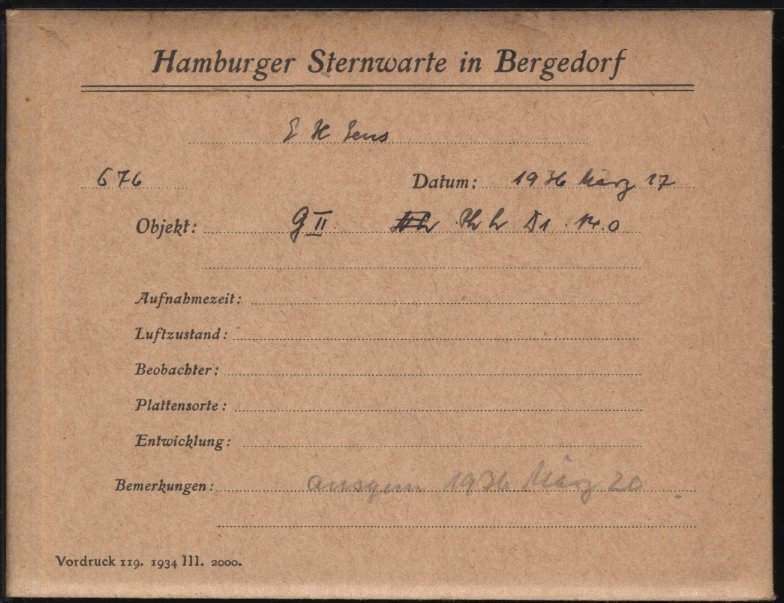 Hamburger Sternwarte in Bergedorf
676 Datum: 1936 März 17
Objekt: G II
Aufnahmezeit:
Luftzustand:
Beobachter:
Plattensorte:
Entwicklung:
Bemerkungen: ausgem 1936 März 20
Vordruck 119. 1934 III. 2000.